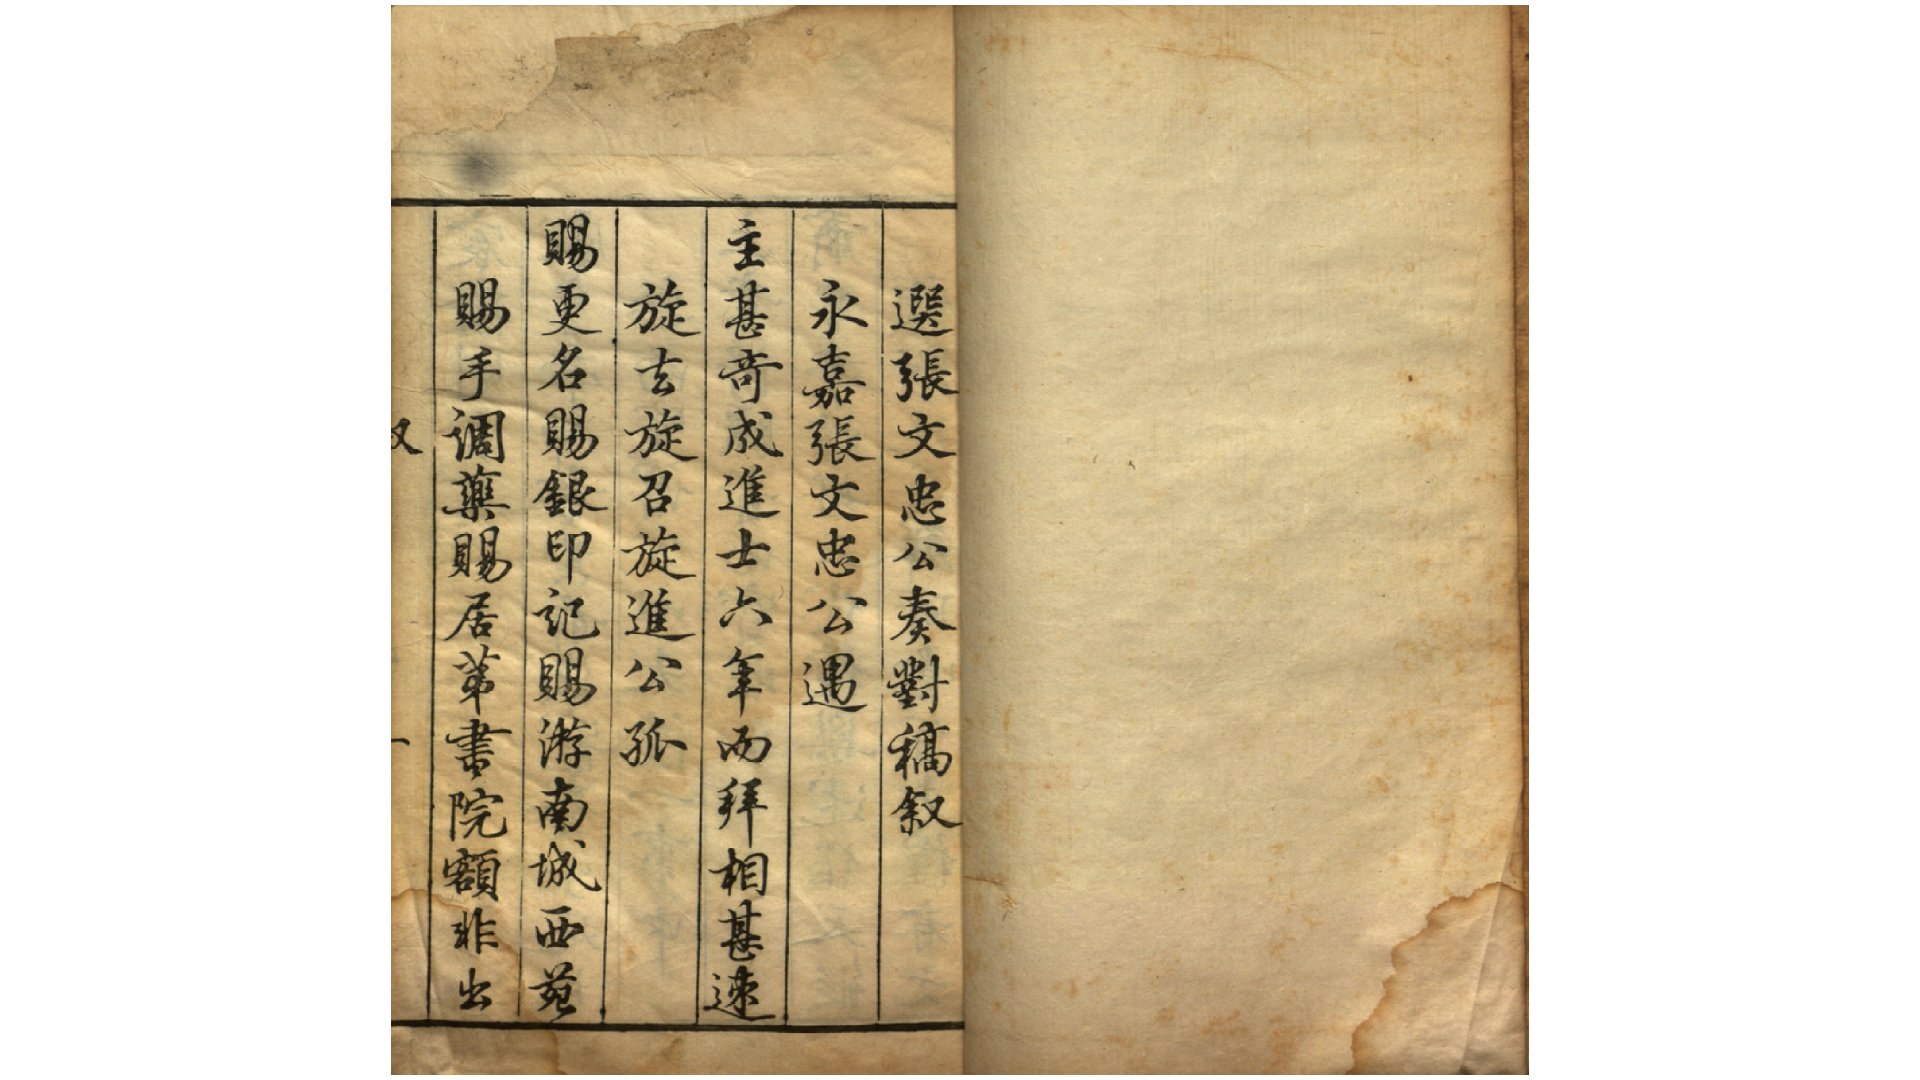 選張文忠公奏對稿叙
永嘉張文忠公遇
主甚奇成進士六年而拜相甚速
旋去旋召旋進公孤
賜更名賜銀印記賜游南城西苑
賜手調藥賜居第書院額非出